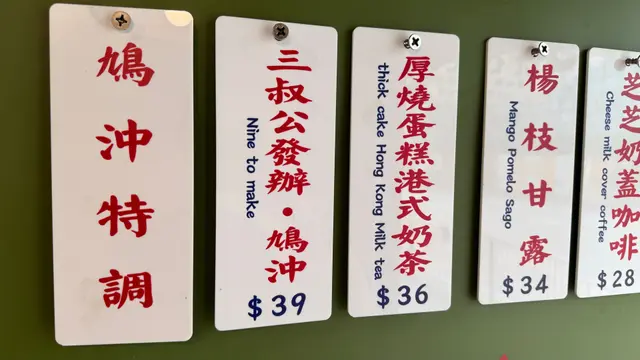 鳩沖特調
三叔公發辦・鳩沖
Nine to make
$39
厚燒蛋糕港式奶茶
thick cake Hong Kong Milk tea
$36
楊枝甘露
Mango Pomelo Sago
$34
芝芝奶蓋咖啡
Cheese milk cover coffee
$28